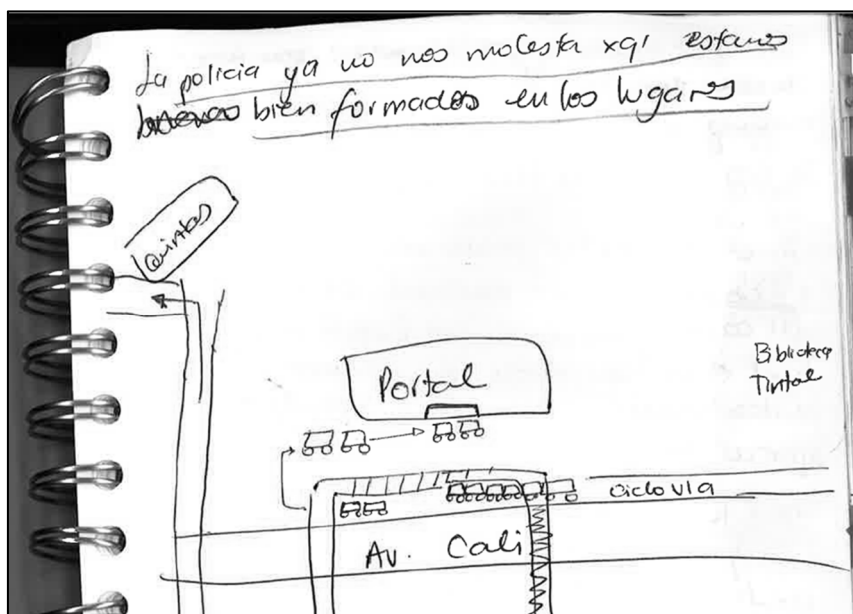 La policia ya no nos molesta xq' estamos
bien formados en los lugares
Quintas
Portal
Biblioteca
Tintal
ciclovia
Av. Cali